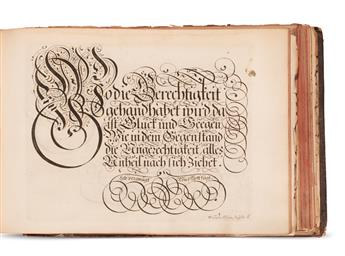 Wo die Gerechtigkeit
gehandhabet wird da
ist Glück und Seegen.
Wie in dem Gegenstand
die Ungerechtigkeit alles
Unheil nach sich Ziehet.